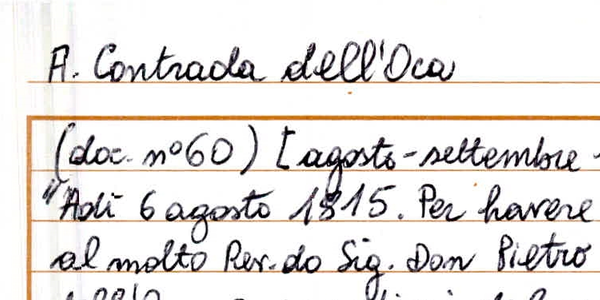 A. Contrada dell'Oca
(doc. n°60) [agosto-settembre -
"Adì 6 agosto 1815. Per havere
al molto Rev.do Sig. Don Pietro